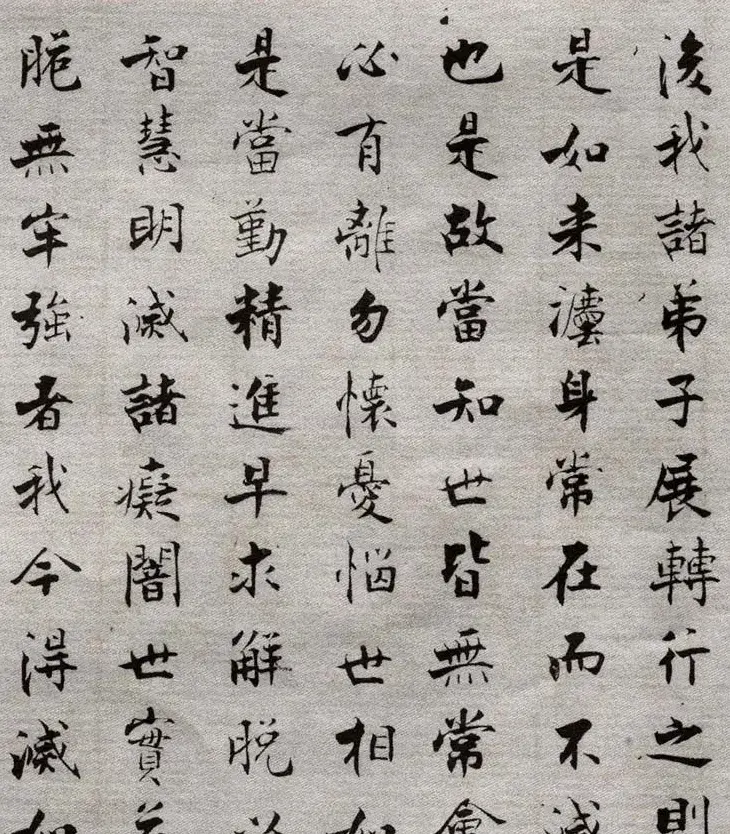 後我諸弟子展轉行之則
是如来灋身常在而不滅
也是故當知世皆無常會
必有離勿懷憂惱世相如
是當勤精進早求解脱
智慧明滅諸癡闇世實
脆無牢強者我今得滅如